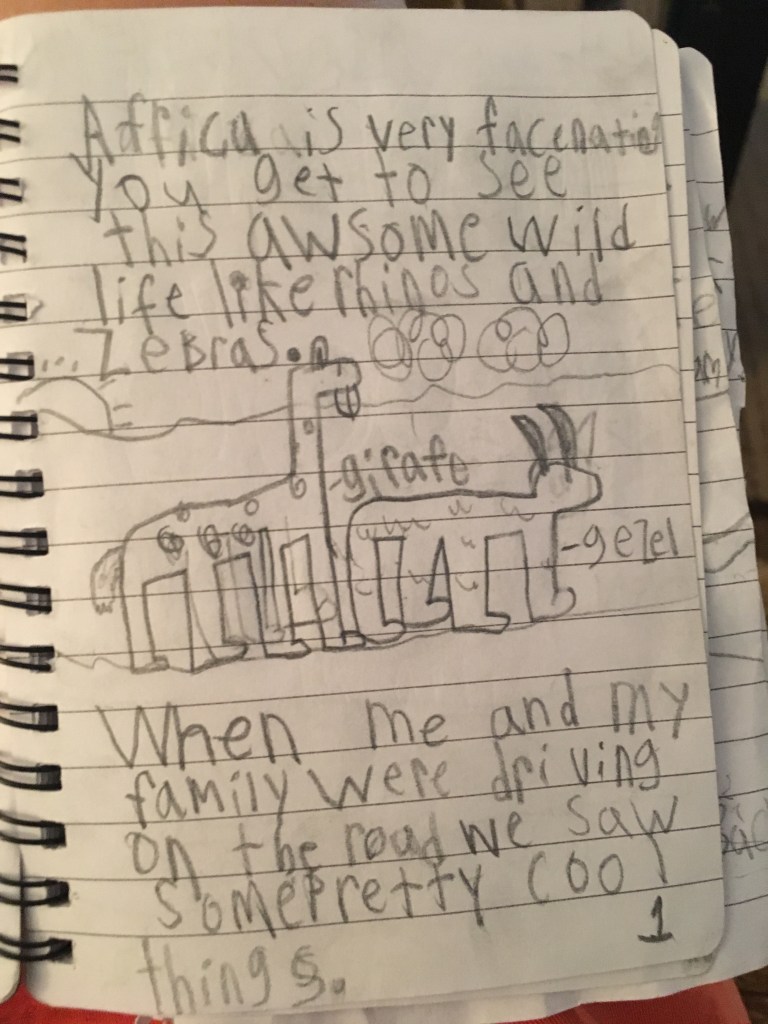 Affica is very facenating
You get to see
this awsome wild
life like rhinos and
... Zebras.
-girafe
-gezel
When me and my
family were driving
on the road we saw
some pretty cool
1
things.